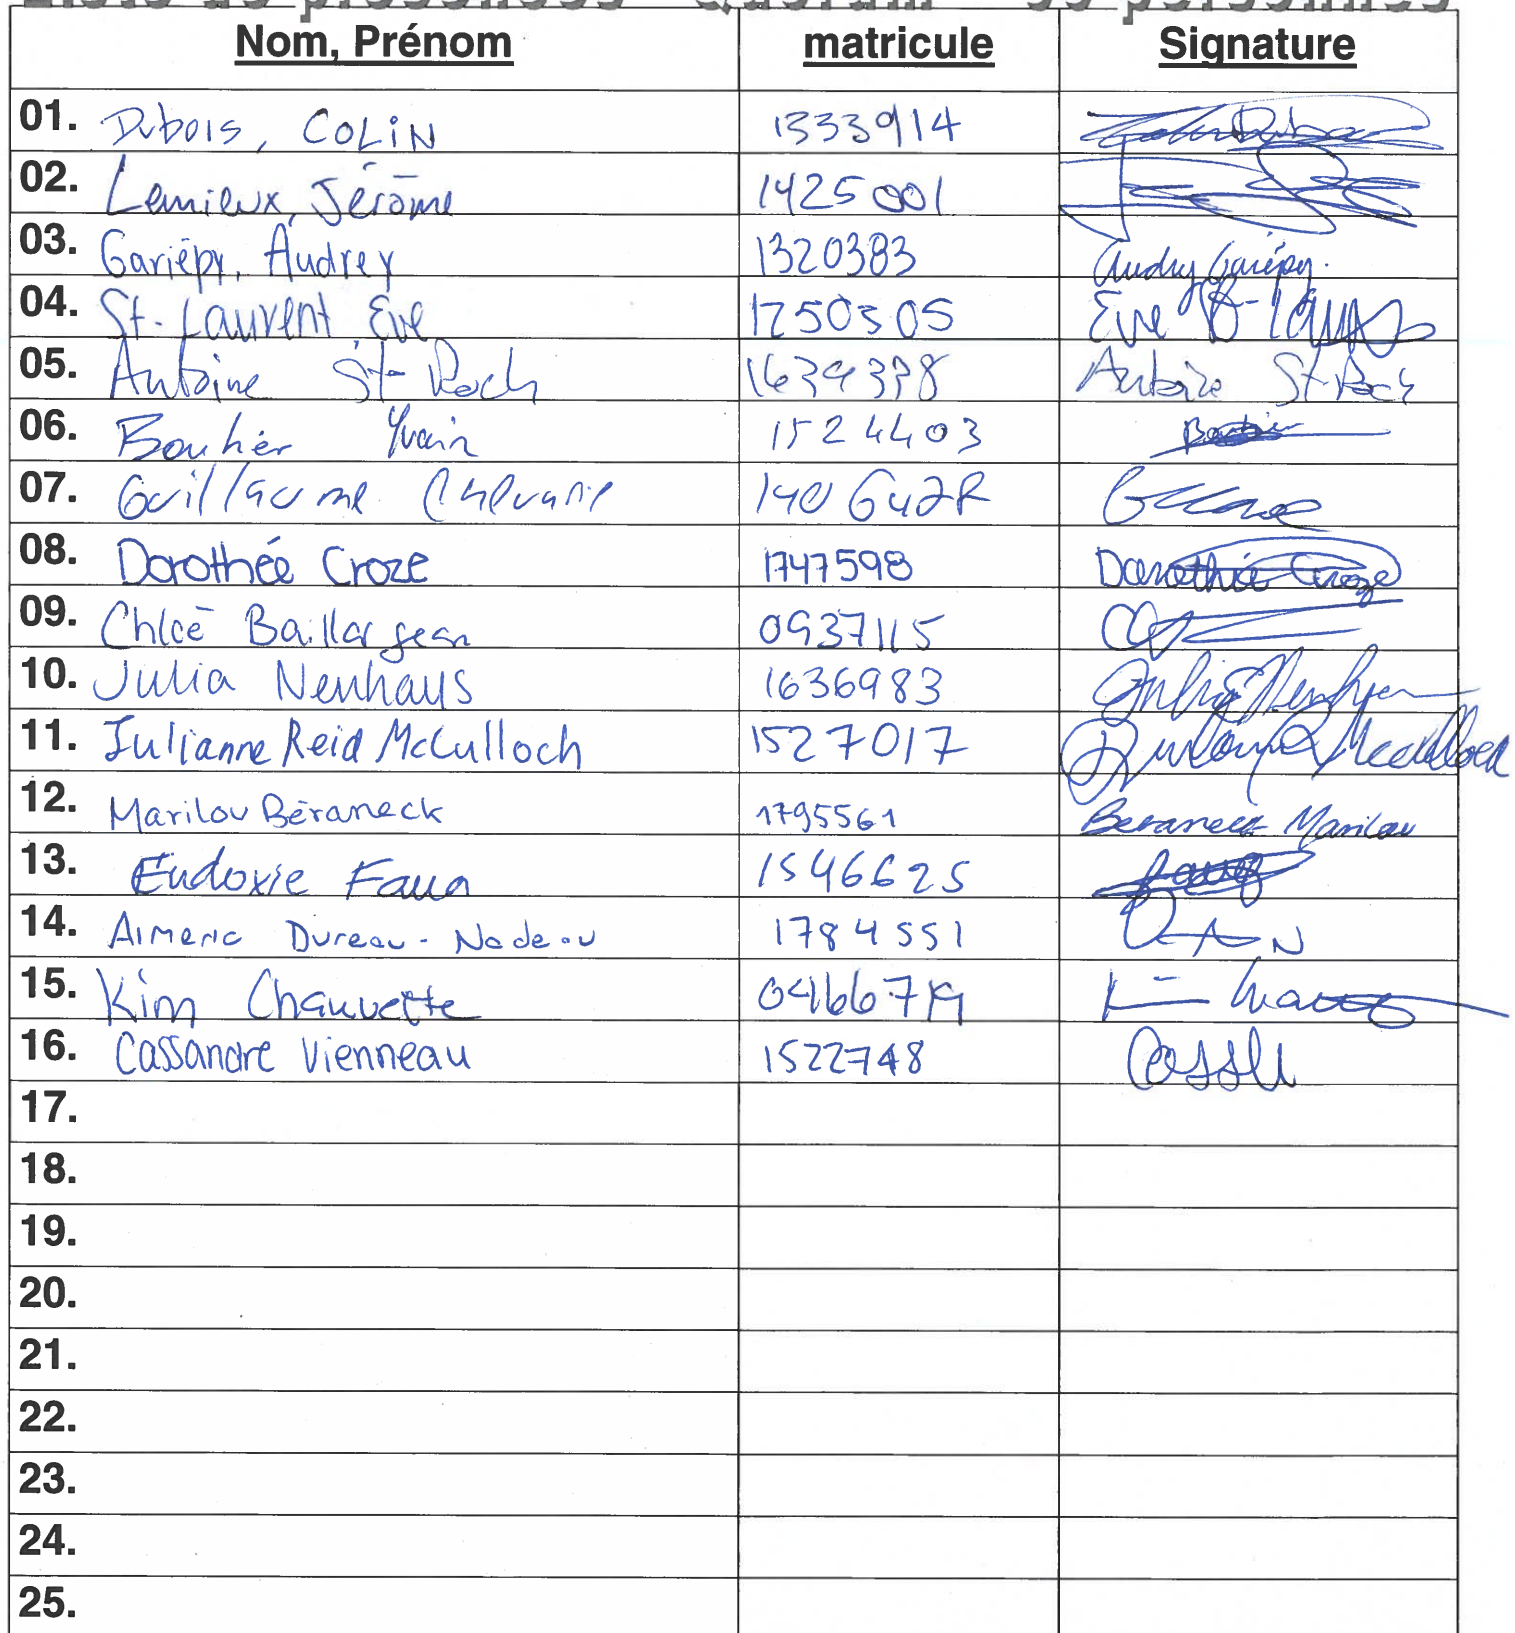 Liste de présences Quorum 30 personnes
Nom, Prénom matricule Signature
01. Dubois, COLIN 1333914
02. Lemieux, Jérôme 1425001
03. Gariépy, Audrey 1320383 Audrey Gariépy.
04. St-Laurent Ève 1250305 Eve St-Laurent
05. Antoine St-Roch Antoine St-Roch
06. Bouhier Yvain 1524403
07. Guillaume
08. Dorothée Croze 1747598 Dorothée Croze
09. Chloé Baillargeon 0937115
10. Julia Neuhaus 1636983 Julia Neuhaus
11. Julianne Reid McCulloch 1527017
12. Marilou Béraneck 1795561 Beraneck Marilou
13. Eudoxie Faua 1546625
14. Aimeric Dureau-Nadeau 1784551 D A N
15. Kim Chauvette
16. Cassandre Vienneau 1522748
17.
18.
19.
20.
21.
22.
23.
24.
25.